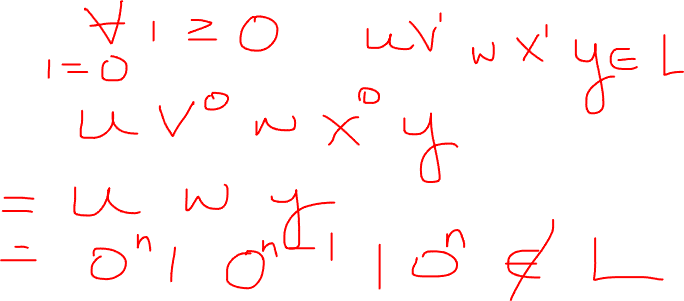 ∀ i ≥ 0 uvⁱwxⁱy ∈ L
i = 0
uv⁰wx⁰y
= uwy
= 0ⁿ1 0ⁿ⁻¹ 1 0ⁿ ∉ L